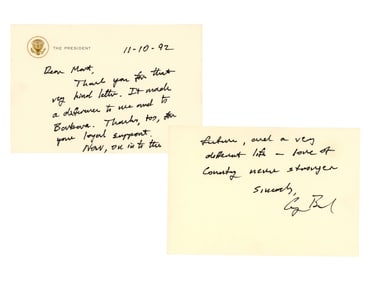 THE PRESIDENT
11-10-92
Dear Mark,
Thank you for that
very kind letter. It made
a difference to me and to
Barbara. Thanks, too, for
your loyal support.
Now, on to the
future, and a very
different life – love of
Country never stronger
Sincerely,
G Bush